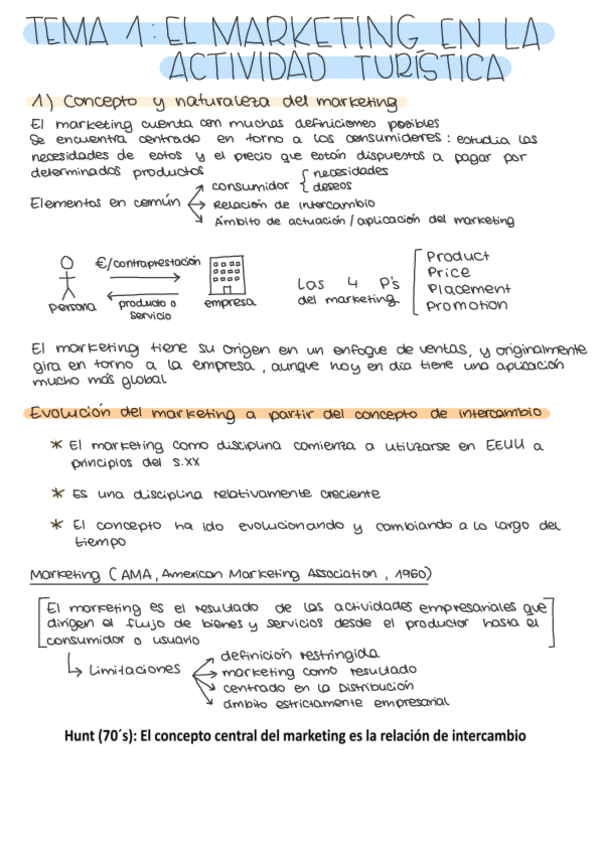 TEMA 1: EL MARKETING EN LA
ACTIVIDAD TURÍSTICA
1) Concepto y naturaleza del marketing
El marketing cuenta con muchas definiciones posibles
Se encuentra centrado en torno a los consumidores: estudia las
necesidades de estos y el precio que están dispuestos a pagar por
determinados productos
necesidades
consumidor
deseos
Elementos en común
Relación de intercambio
Ámbito de actuación / aplicación del marketing
€/contraprestación
persona
producto o
servicio
empresa
Las 4 P's
del marketing
Product
Price
Placement
Promotion
El marketing tiene su origen en un enfoque de ventas, y originalmente
gira en torno a la empresa, aunque hoy en día tiene una aplicación
mucho más global
Evolución del marketing a partir del concepto de intercambio
* El marketing como disciplina comienza a utilizarse en EEUU a
principios del s.XX
* Es una disciplina relativamente creciente
* El concepto ha ido evolucionando y cambiando a lo largo del
tiempo
Marketing (AMA, American Marketing Association, 1960)
El marketing es el resultado de las actividades empresariales que
dirigen el flujo de bienes y servicios desde el productor hasta el
consumidor o usuario
definición restringida
Limitaciones
marketing como resultado
centrado en la Distribución
ámbito estrictamente empresarial
Hunt (70´s): El concepto central del marketing es la relación de intercambio